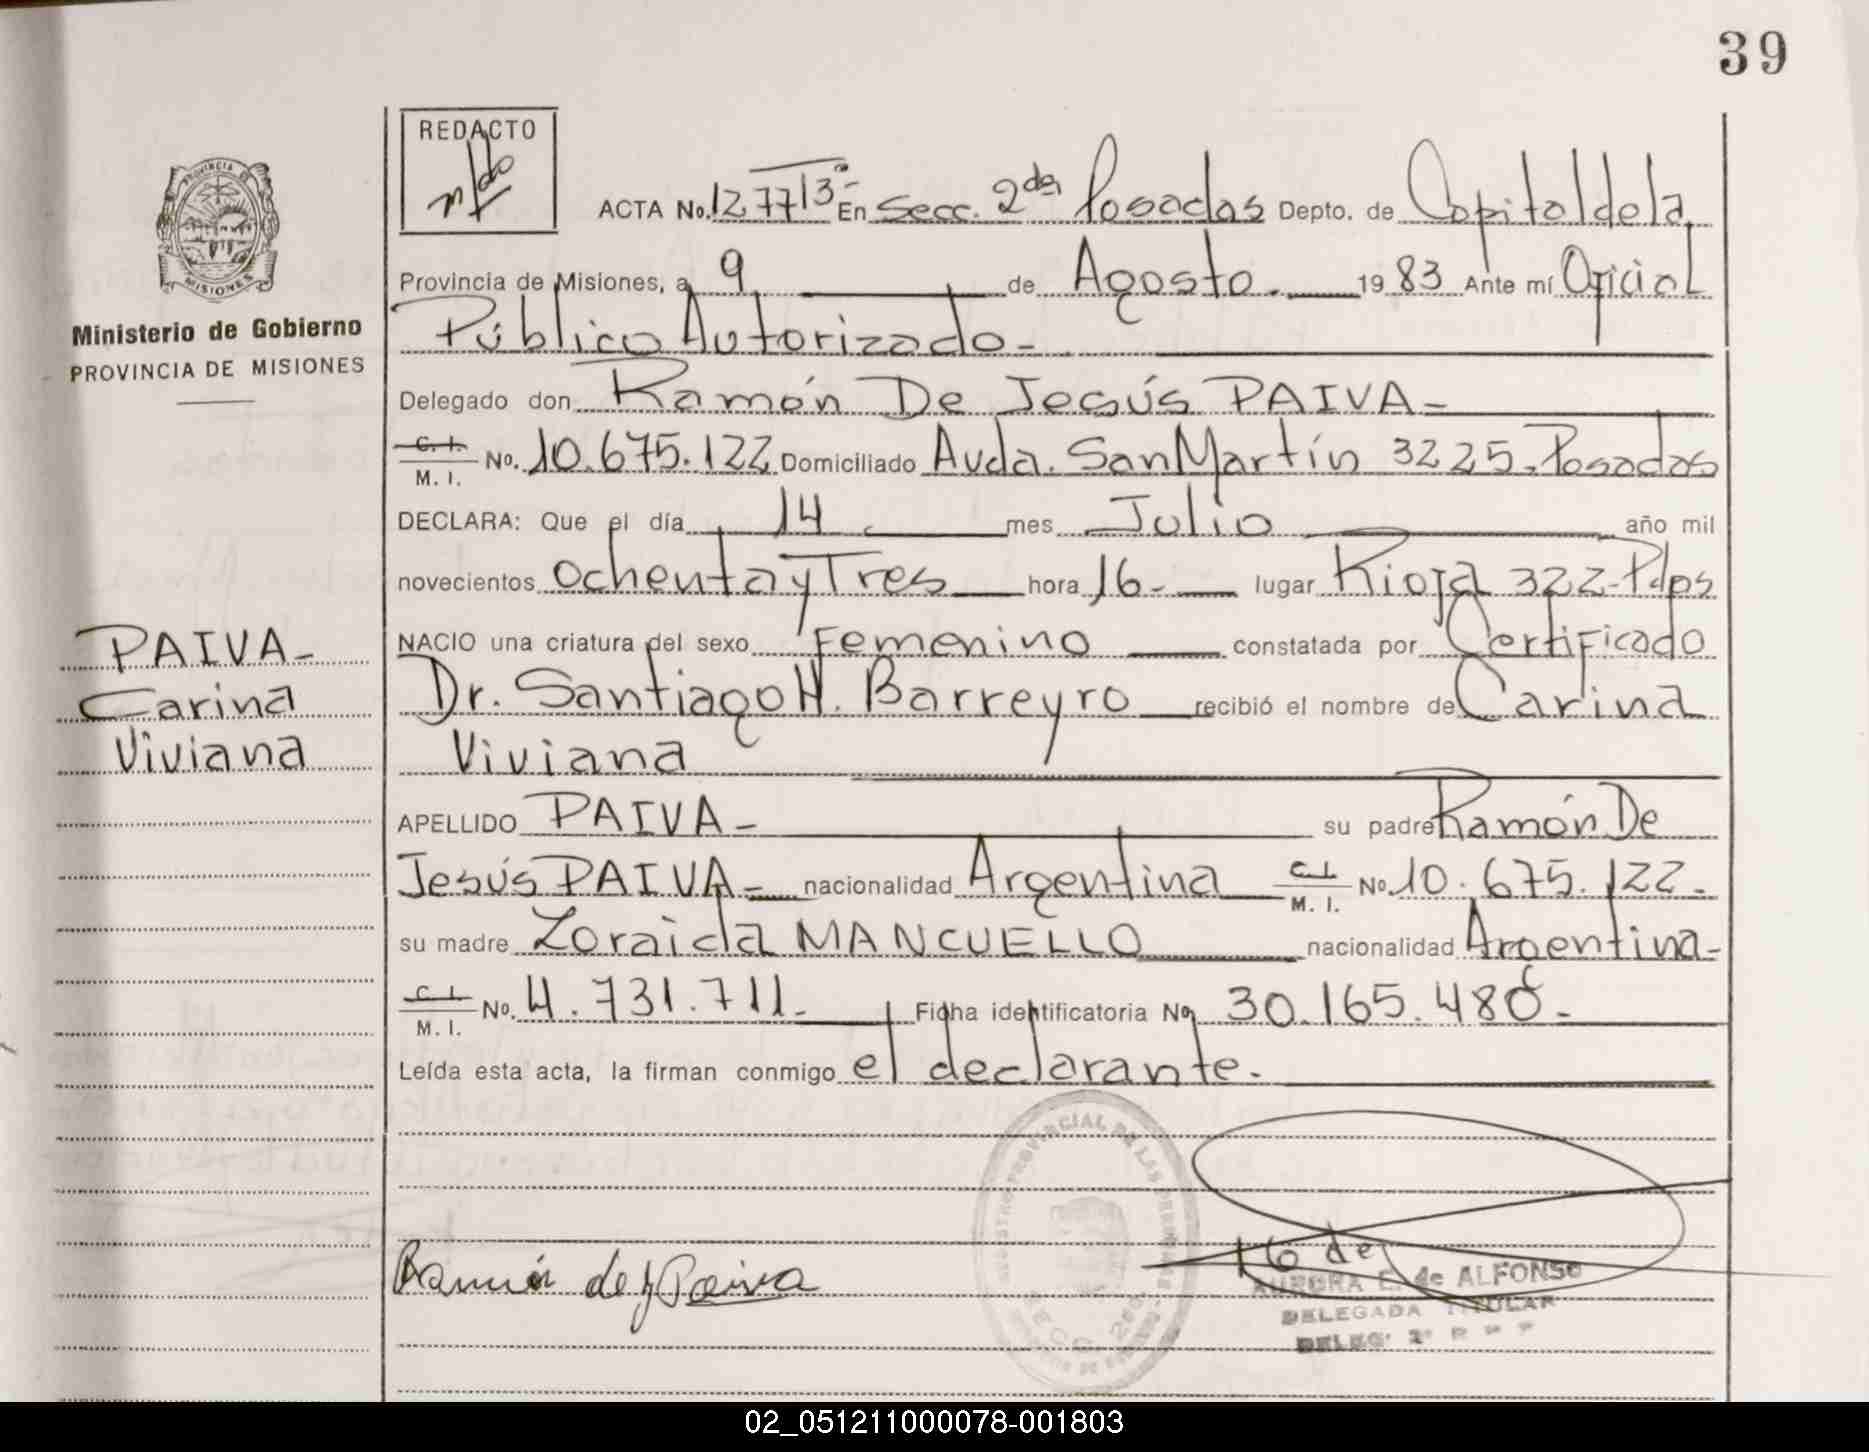 39
REDACTO
PROVINCIA DE MISIONES
ACTA No. 1277 T 3º- En Secc. 2da Posadas Depto. de Capital de la
Provincia de Misiones, a 9 de Agosto. 1983 Ante mí Oficial
Ministerio de Gobierno
Público Autorizado-
PROVINCIA DE MISIONES
Delegado don Ramón De Jesús PAIVA-
C. I.
M. I. No. 10.675.122 Domiciliado Avda. San Martín 3225-Posadas
DECLARA: Que el día 14 mes Julio año mil
novecientos ochenta y Tres hora 16- lugar Rioja 322-Pdas
PAIVA-
NACIO una criatura del sexo Femenino constatada por Certificado
Carina
Dr. Santiago H. Barreyro recibió el nombre de Carina
Viviana
Viviana
APELLIDO PAIVA- su padre Ramón De
Jesús PAIVA- nacionalidad Argentina C. I.
M. I. No. 10.675.122-
su madre Zoraida MANCUELLO nacionalidad Argentina-
C. I.
M. I. No. 4.731.711- Ficha identificatoria No 30.165.486-
Leída esta acta, la firman conmigo el declarante.
REGISTRO PROVINCIAL DE LAS PERSONAS
SECC. 2da.
Ramón de J Paiva
AURORA E. de ALFONSO
DELEGADA TITULAR
DELEG. 2ª R P P
02_051211000078-001803